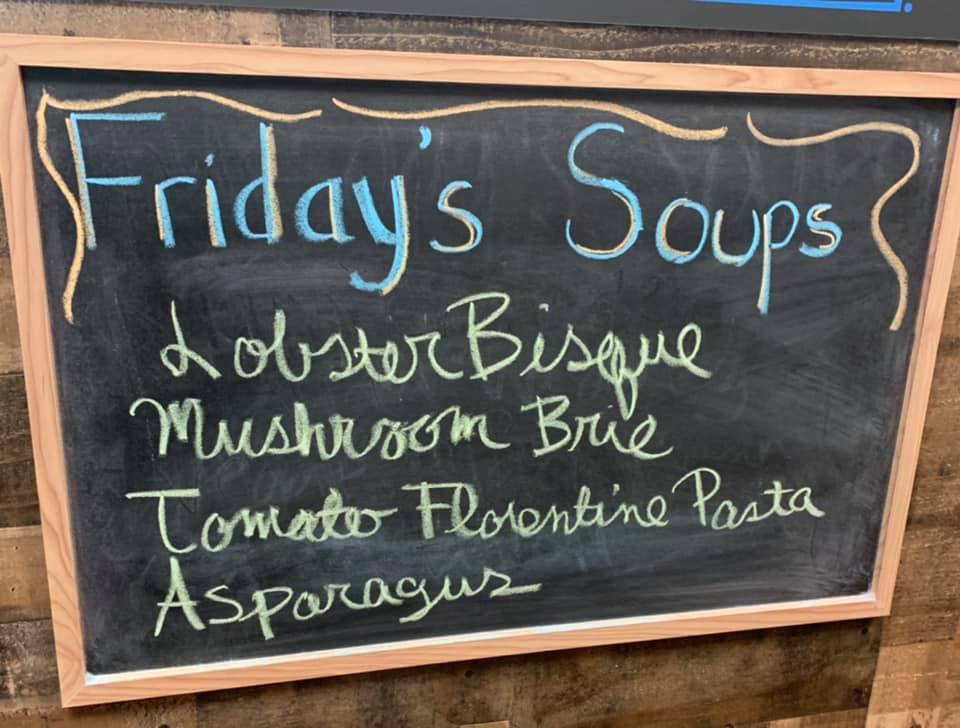 Friday's Soups
Lobster Bisque
Mushroom Brie
Tomato Florentine Pasta
Asparagus